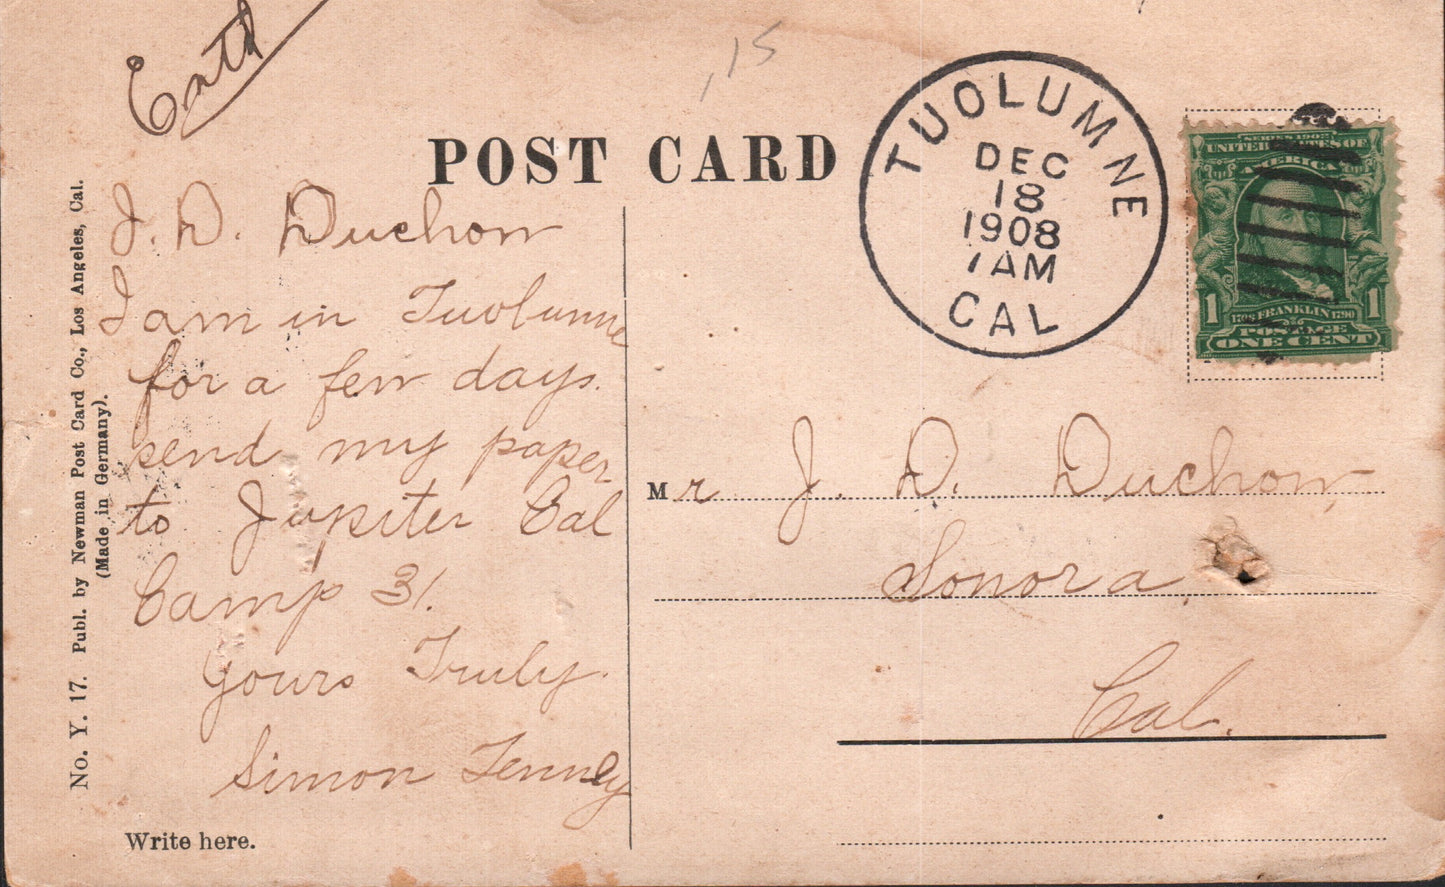 ,15
POST CARD
TUOLUMNE
DEC
18
1908
1AM
CAL
SERIES 1902
UNITED STATES OF
AMERICA
1 1
1706 FRANKLIN 1790
POSTAGE
ONE CENT
J. D. Duchow
I am in Tuolumne
for a few days.
send my paper
to Jupiter Cal
Camp 31.
Yours Truly.
Simon Tenney
Write here.
Mr J. D. Duchow
Sonora
Cal.
No. Y. 17. Publ. by Newman Post Card Co., Los Angeles, Cal.
(Made in Germany).